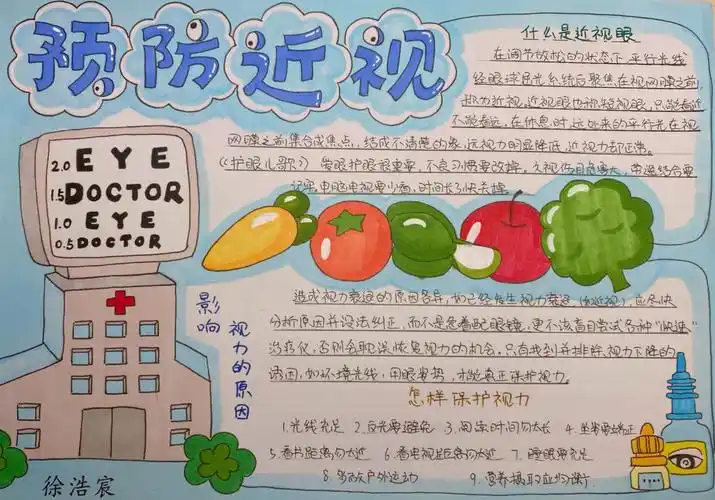 预防近视
什么是近视眼
在调节放松的状态下平行光线
经眼球屈光系统后聚焦在视网膜之前
称为近视。近视眼也称短视眼，只能看近
不能看远。在休息时，远处来的平行光在视
网膜之前集合成焦点，结成不清楚的象。远视力明显降低，近视力却正常。
《护眼儿歌》爱眼护眼很重要，不良习惯要改掉。
电脑电视要少看，时间长了快去掉
2.0 E Y E
1.5 DOCTOR
1.0 E Y E
0.5 DOCTOR
影响
视力的原因
造成视力衰退的原因各异，如已经发生视力衰退，应尽快
分析原因并设法纠正，而不是急着配眼镜，更不该盲目尝试各种"快速"
治疗仪，否则会耽误恢复视力的机会。只有找到并排除视力下降的
诱因，如环境光线，用眼姿势，才能真正保护视力。
怎样保护视力
1.光线充足 2.反光要避免 3.阅读时间勿太长 4.坐姿要端正
5.看书距离勿太近 6.看电视距离勿太近 7.睡眠要充足
8.多做户外运动 9.营养摄取应均衡
徐浩宸